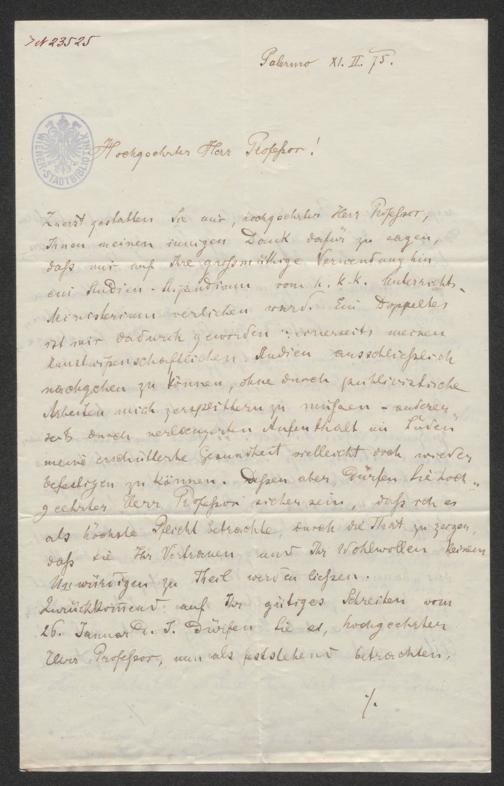 N 23525
Palermo XI. II. 75.
WIENER STADTBIBLIOTHEK
Hochgeehrter Herr Professor!
Zuerst gestatten Sie mir, hochgeehrter Herr Professor,
Ihnen meinen innigen Dank dafür zu sagen,
daß mir auf Ihre großmüthige Verwendung hin
ein Studien-Stipendium vom h. k. k. Unterrichts-
Ministerium verliehen ward. Ein Doppeltes
ist mir dadurch geworden: einerseits meinen
kunstwissenschaftlichen Studien ausschließlich
nachgehen zu können, ohne durch publizistische
Arbeiten mich zersplittern zu müssen – anderer-
seits durch verlängerten Aufenthalt im Süden
meine erschütterte Gesundheit vielleicht doch wieder
befestigen zu können. Dessen aber dürfen Sie hoch-
geehrter Herr Professor sicher sein, daß ich es
als höchste Pflicht betrachte, durch die That zu zeigen,
daß Sie Ihr Vertrauen und Ihr Wohlwollen keinem
Unwürdigen zu Theil werden ließen.
Zurückkommend auf Ihr gütiges Schreiben vom
26. Januar d. J. dürfen Sie es, hochgeehrter
Herr Professor, nun als feststehend betrachten,
./.